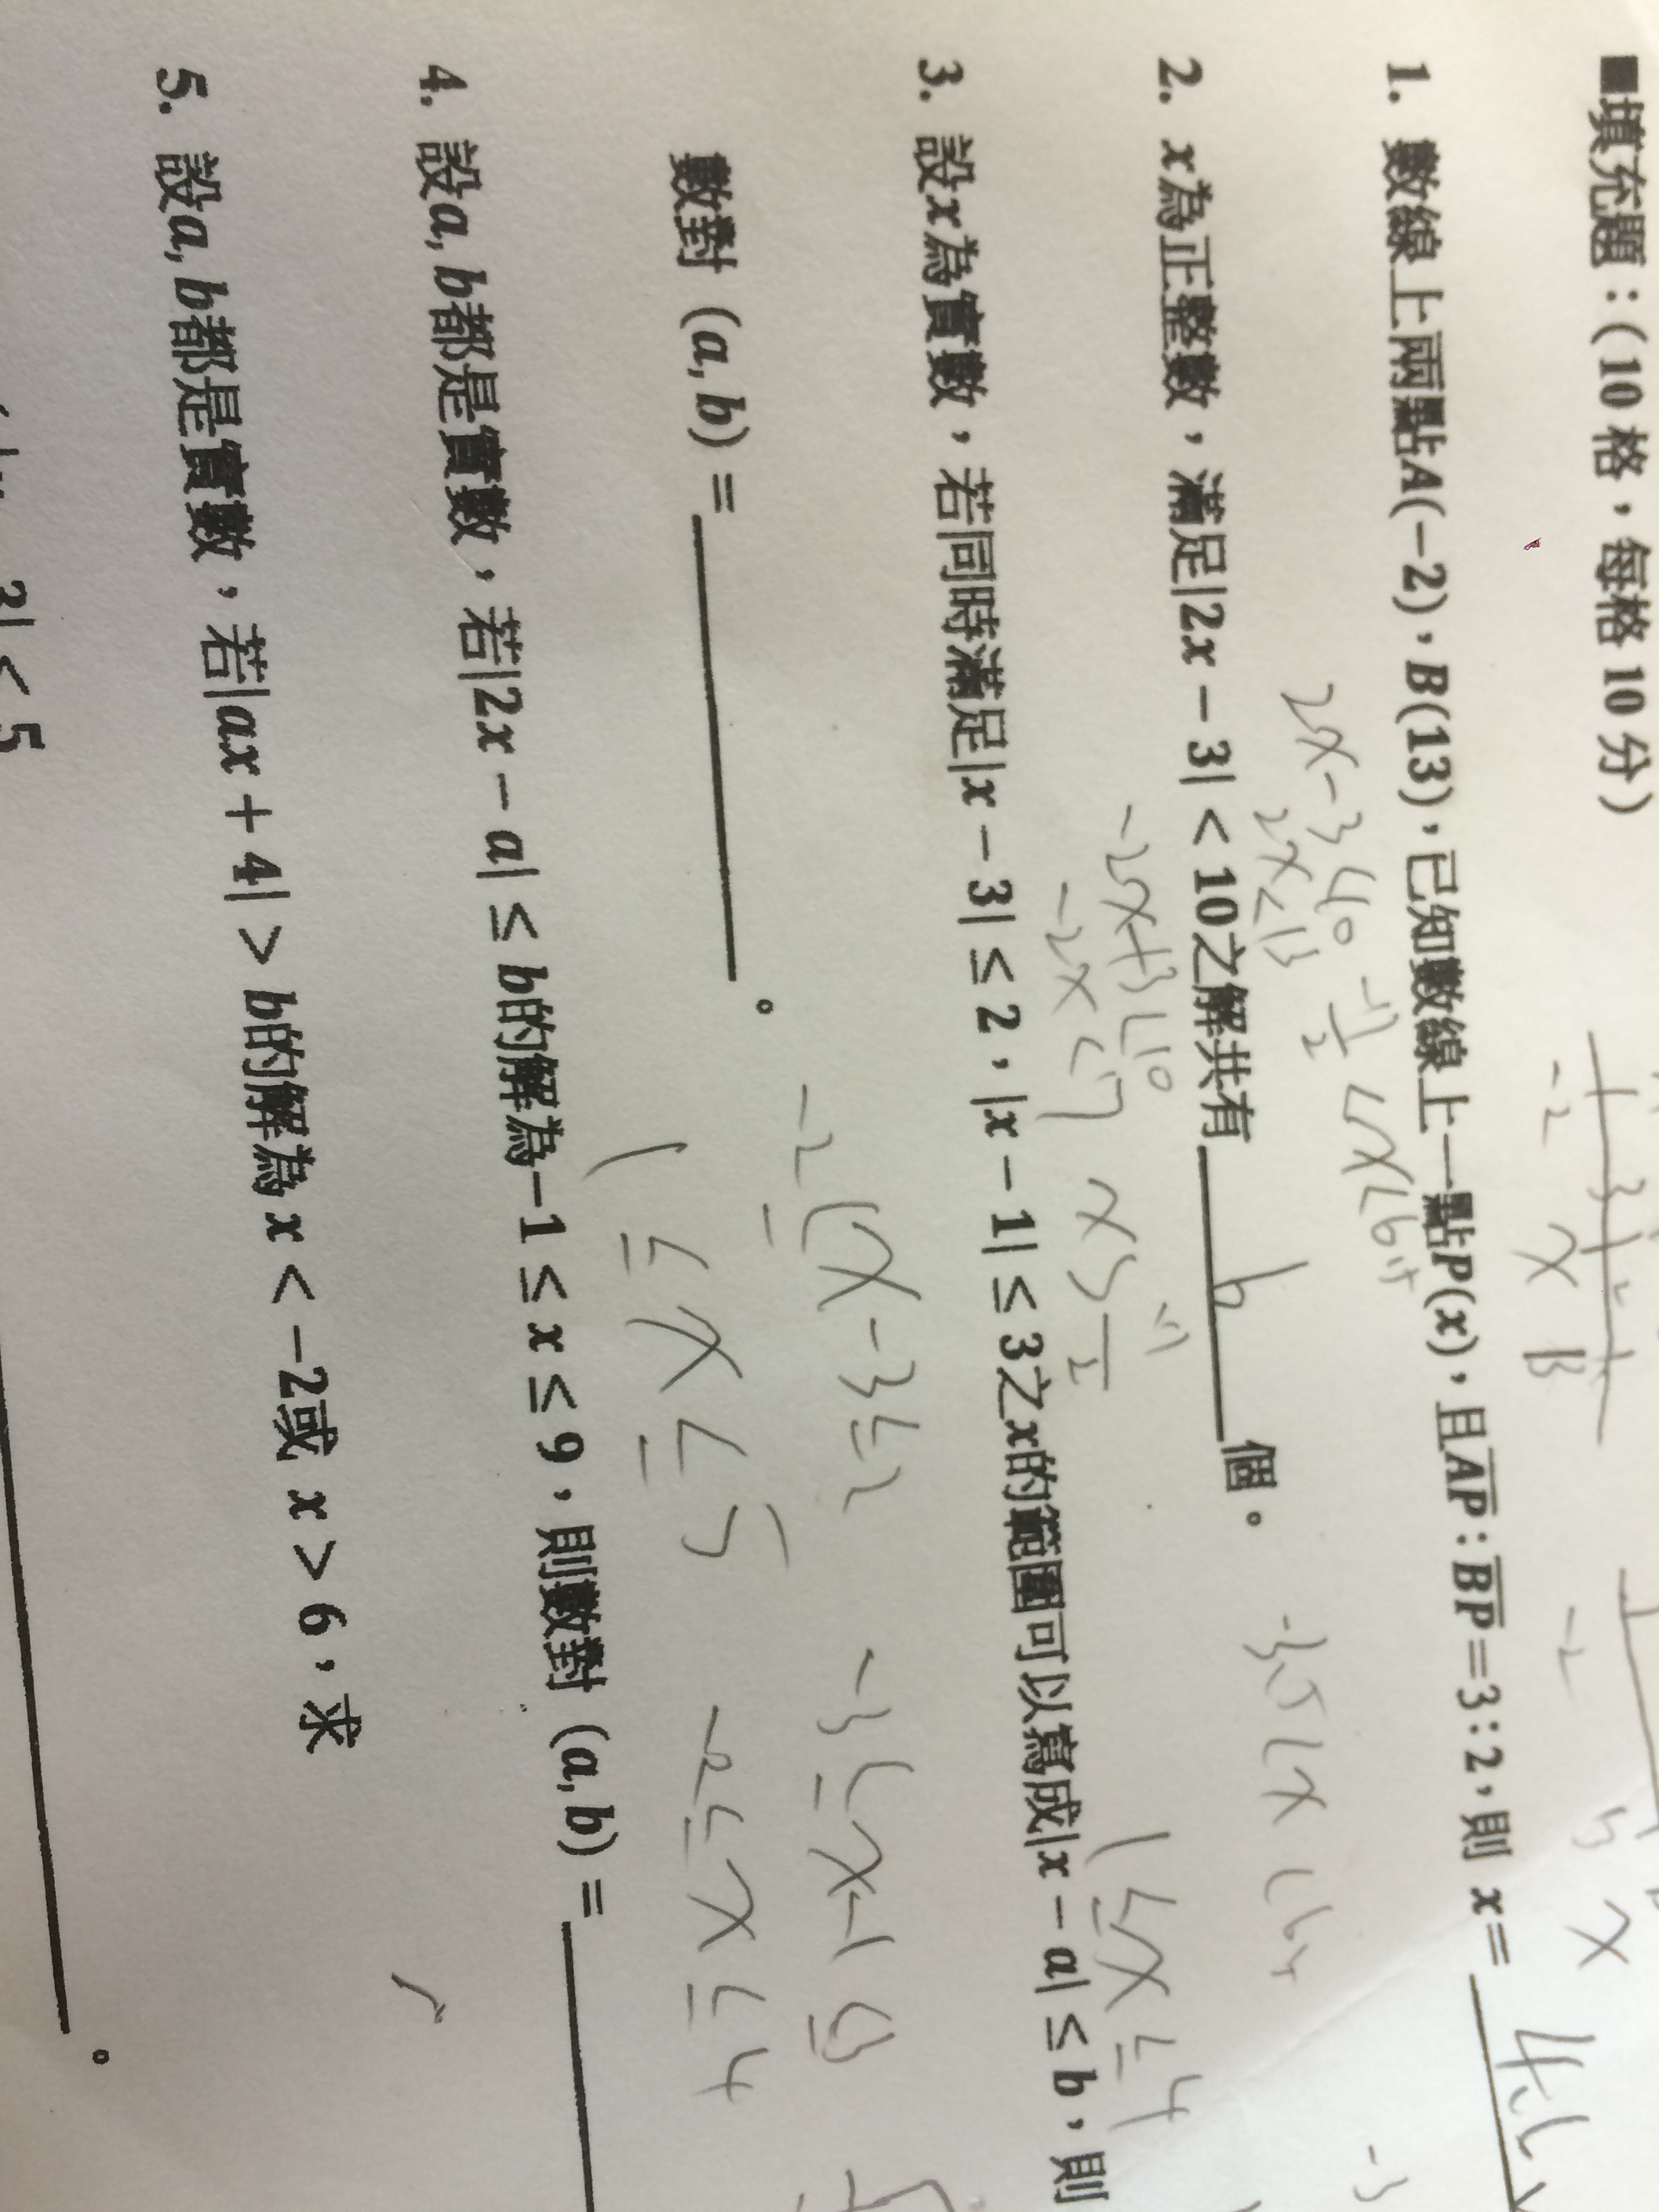 ■填充題：（10 格，每格 10 分）
1. 數線上兩點A(−2)，B(13)，已知數線上一點P(x)，且AP：BP=3：2，則 x=
-2 x 13
-2 x
2x-3<10
2x<13
2. x為正整數，滿足|2x − 3| < 10之解共有 6 個。
-2x+3<10
-2x<7
3. 設x為實數，若同時滿足|x − 3| ≤ 2，|x − 1| ≤ 3之x的範圍可以寫成|x − a| ≤ b，則
1≤x≤4
數對 (a, b) = 。
-2≤x-3≤2
-3≤x-1≤3
1≤x≤5
-2≤x≤4
4. 設a, b都是實數，若|2x − a| ≤ b的解為−1 ≤ x ≤ 9，則數對 (a, b) =
5. 設a, b都是實數，若|ax + 4| > b的解為 x < −2或 x > 6，求
。
3| < 5